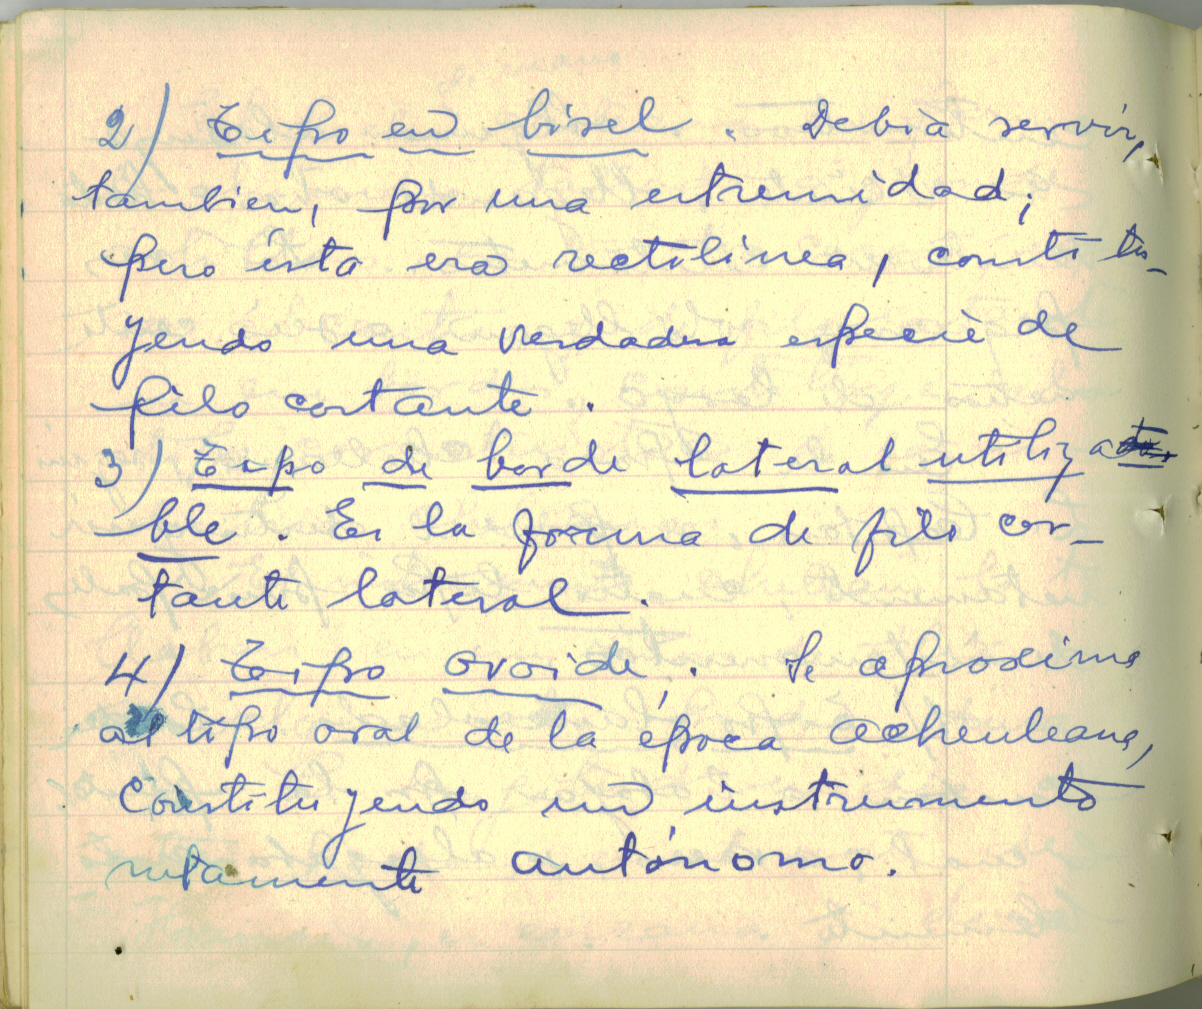 2) Tipo en bisel. Debía servir,
tambien, por una extremidad;
pero ésta era rectilinea, constitu-
yendo una verdadera especie de
filo cortante.
3) Tipo de borde lateral utiliza
ble. Es la forma de filo cor-
tante lateral.
4) Tipo ovoide,. Se aproxima
al tipo oval de la época acheuleana,
constituyendo un instrumento
netamente autónomo.